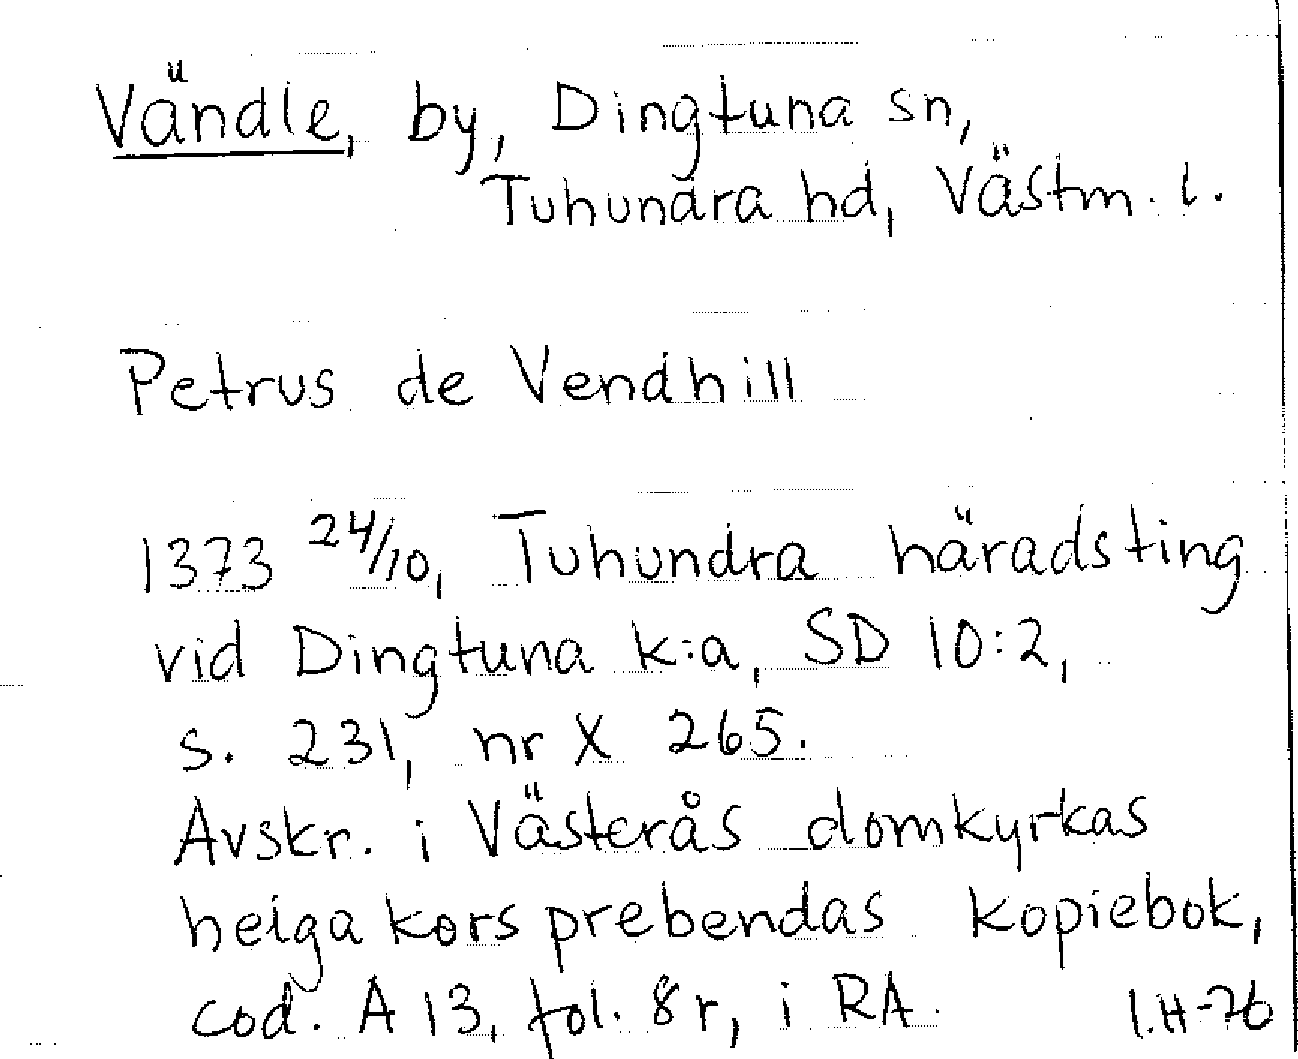 Vändle, by, Dingtuna sn,
Tuhundra hd, Västm. l.
Petrus de Vendhill
1373 24/10, Tuhundra häradsting
vid Dingtuna k:a, SD 10:2,
s. 231, nr X 265.
Avskr. i Västerås domkyrkas
helga kors prebendas kopiebok,
cod. A 13, fol. 8 r, i RA. I.H-76